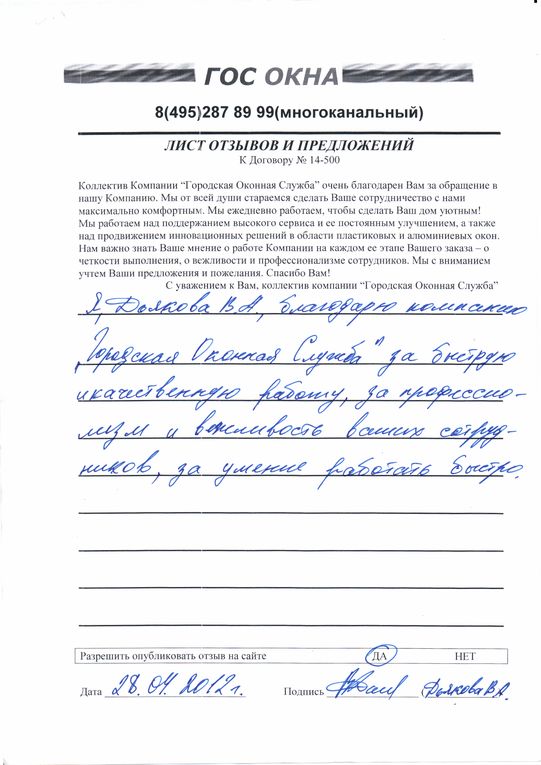 ГОС ОКНА
8(495)287 89 99(многоканальный)
ЛИСТ ОТЗЫВОВ И ПРЕДЛОЖЕНИЙ
К Договору № 14-500
Коллектив Компании “Городская Оконная Служба” очень благодарен Вам за обращение в
нашу Компанию. Мы от всей души стараемся сделать Ваше сотрудничество с нами
максимально комфортным. Мы ежедневно работаем, чтобы сделать Ваш дом уютным!
Мы работаем над поддержанием высокого сервиса и ее постоянным улучшением, а также
над продвижением инновационных решений в области пластиковых и алюминиевых окон.
Нам важно знать Ваше мнение о работе Компании на каждом ее этапе Вашего заказа – о
четкости выполнения, о вежливости и профессионализме сотрудников. Мы с вниманием
учтем Ваши предложения и пожелания. Спасибо Вам!
С уважением к Вам, коллектив компании “Городская Оконная Служба”
Я, Дьякова В.А., благодарю компанию
„Городская Оконная Служба" за быструю
и качественную работу, за профессио-
лизм и вежливость ваших сотруд-
ников, за умение работать быстро.
Разрешить опубликовать отзыв на сайте ДА НЕТ
Дата 28.04.2012г. Подпись Дьякова В.А.